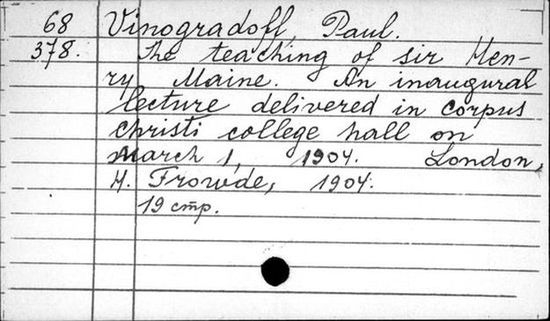 68 Vinogradoff, Paul.
378. The teaching of sir Hen-
ry Maine. An inaugural
lecture delivered in Corpus
Christi college hall on
March 1, 1904. London,
H. Frowde, 1904.
19 стр.